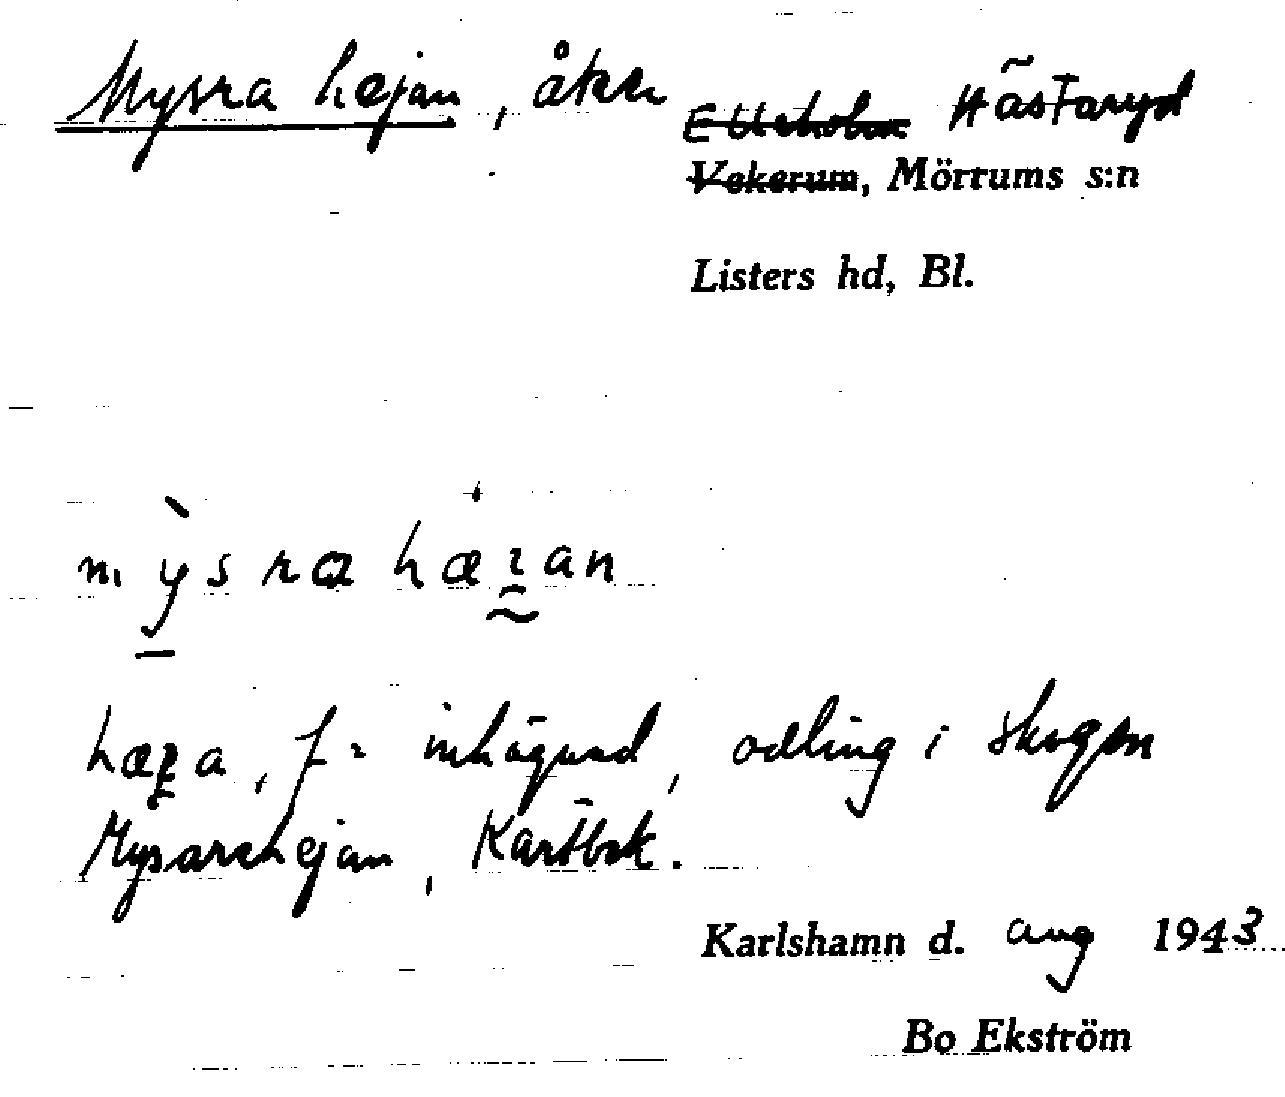 Mysra hejan, åker
Hästaryd
Vekerum, Mörrums s:n
Listers hd, Bl.
mysra hæɀan
hæɀa, f = inhägnad, odling i skogen
Mysarehejan, Kartbok.
Karlshamn d. aug 1943
Bo Ekström